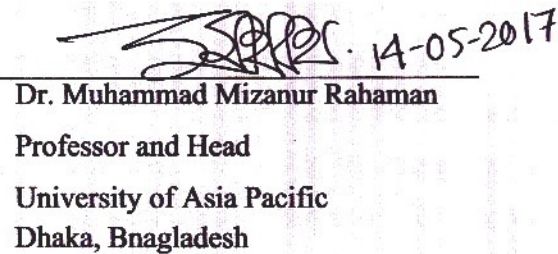 14-05-2017
Dr. Muhammad Mizanur Rahaman
Professor and Head
University of Asia Pacific
Dhaka, Bnagladesh